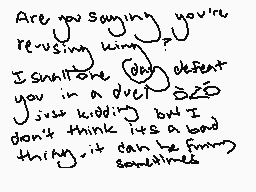 Are you saying you're
re-using king?
I shall one day defeat
you in a duel òzó
just kidding but I
don't think its a bad
thing. it can be funny
sometimes